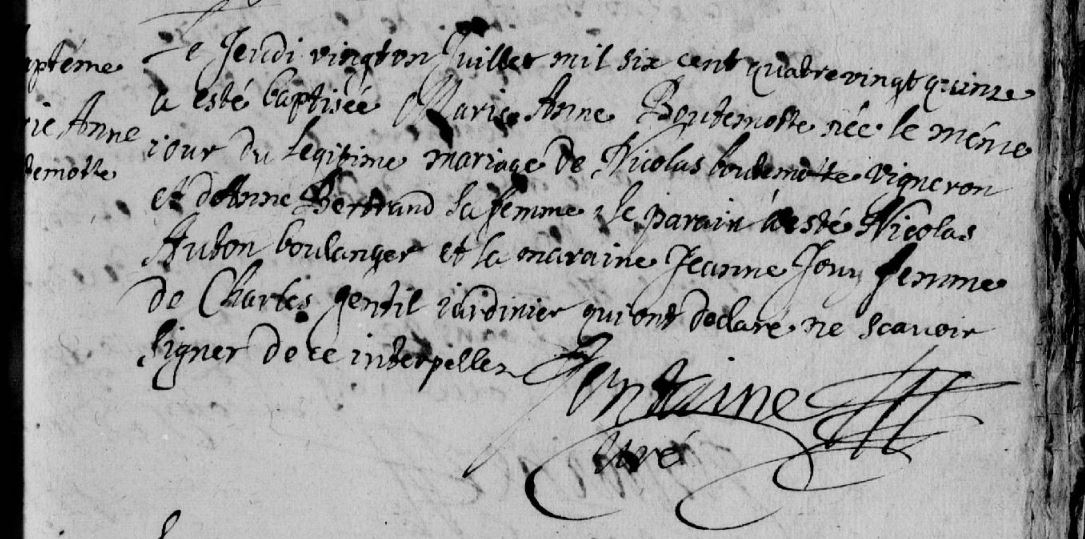 Le Jeudi vingt on Juillet mil six cent quatre vingt quinze
aptéme
a esté baptiseé Marie Anne Boutemotte née le méme
rie Anne
iour du legitime mariage de Nicolas boutemotte vigneron
temotte
et d'Anne Bertrand sa femme, le parain à esté Nicolas
Aubon boulanger et la maraine Jeanne Jouy femme
de Charles gentil iardinier qui ont declaré ne scavoir
signer de ce interpellez
Fontaine
Curé